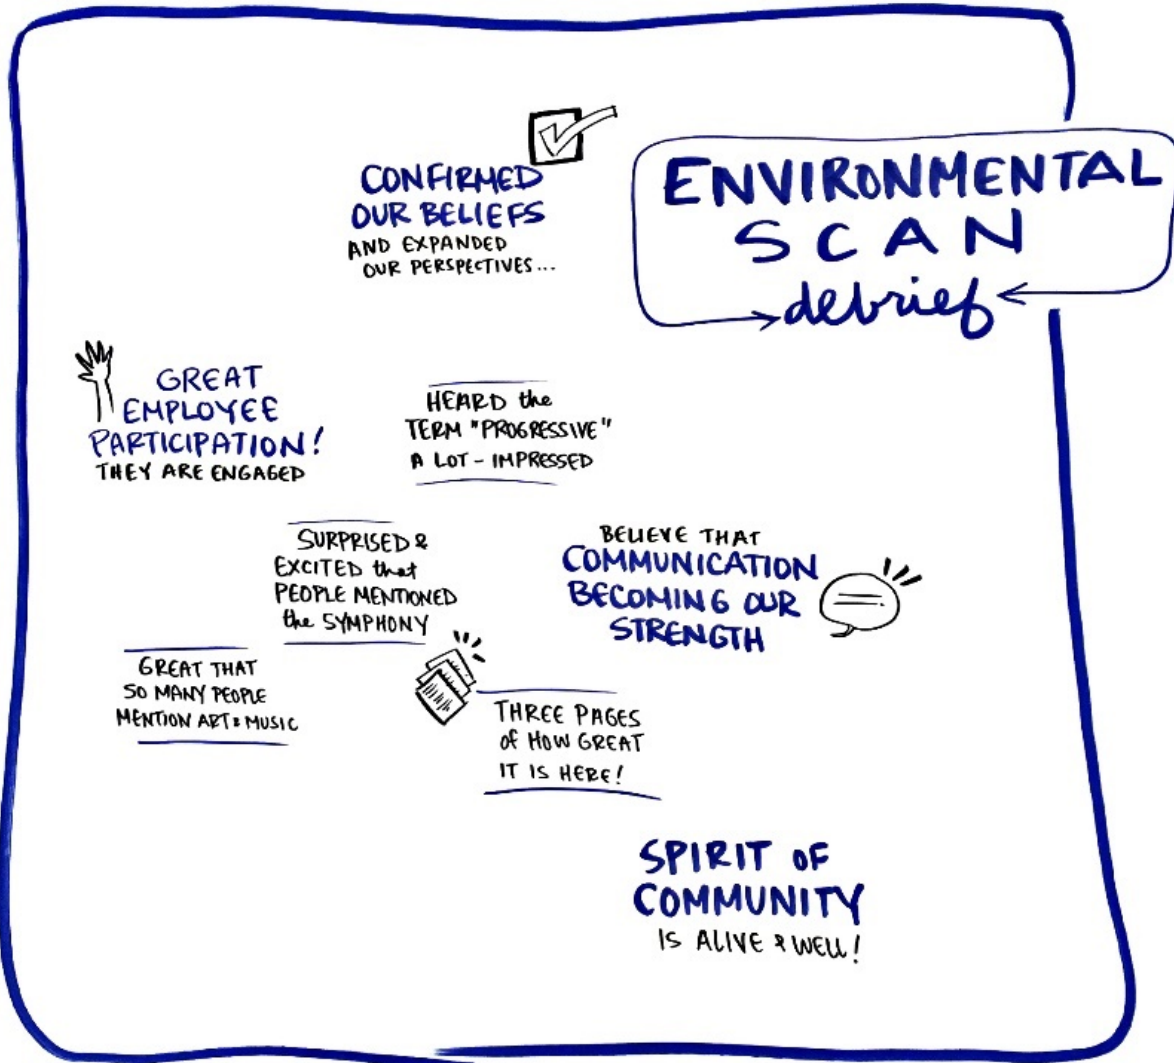 ENVIRONMENTAL
SCAN
debrief
CONFIRMED
OUR BELIEFS
AND EXPANDED
OUR PERSPECTIVES...
GREAT
EMPLOYEE
PARTICIPATION!
THEY ARE ENGAGED
HEARD the
TERM "PROGRESSIVE"
A LOT - IMPRESSED
SURPRISED &
EXCITED that
PEOPLE MENTIONED
the SYMPHONY
BELIEVE THAT
COMMUNICATION
BECOMING OUR
STRENGTH
GREAT THAT
SO MANY PEOPLE
MENTION ART & MUSIC
THREE PAGES
of HOW GREAT
IT IS HERE!
SPIRIT OF
COMMUNITY
IS ALIVE & WELL!